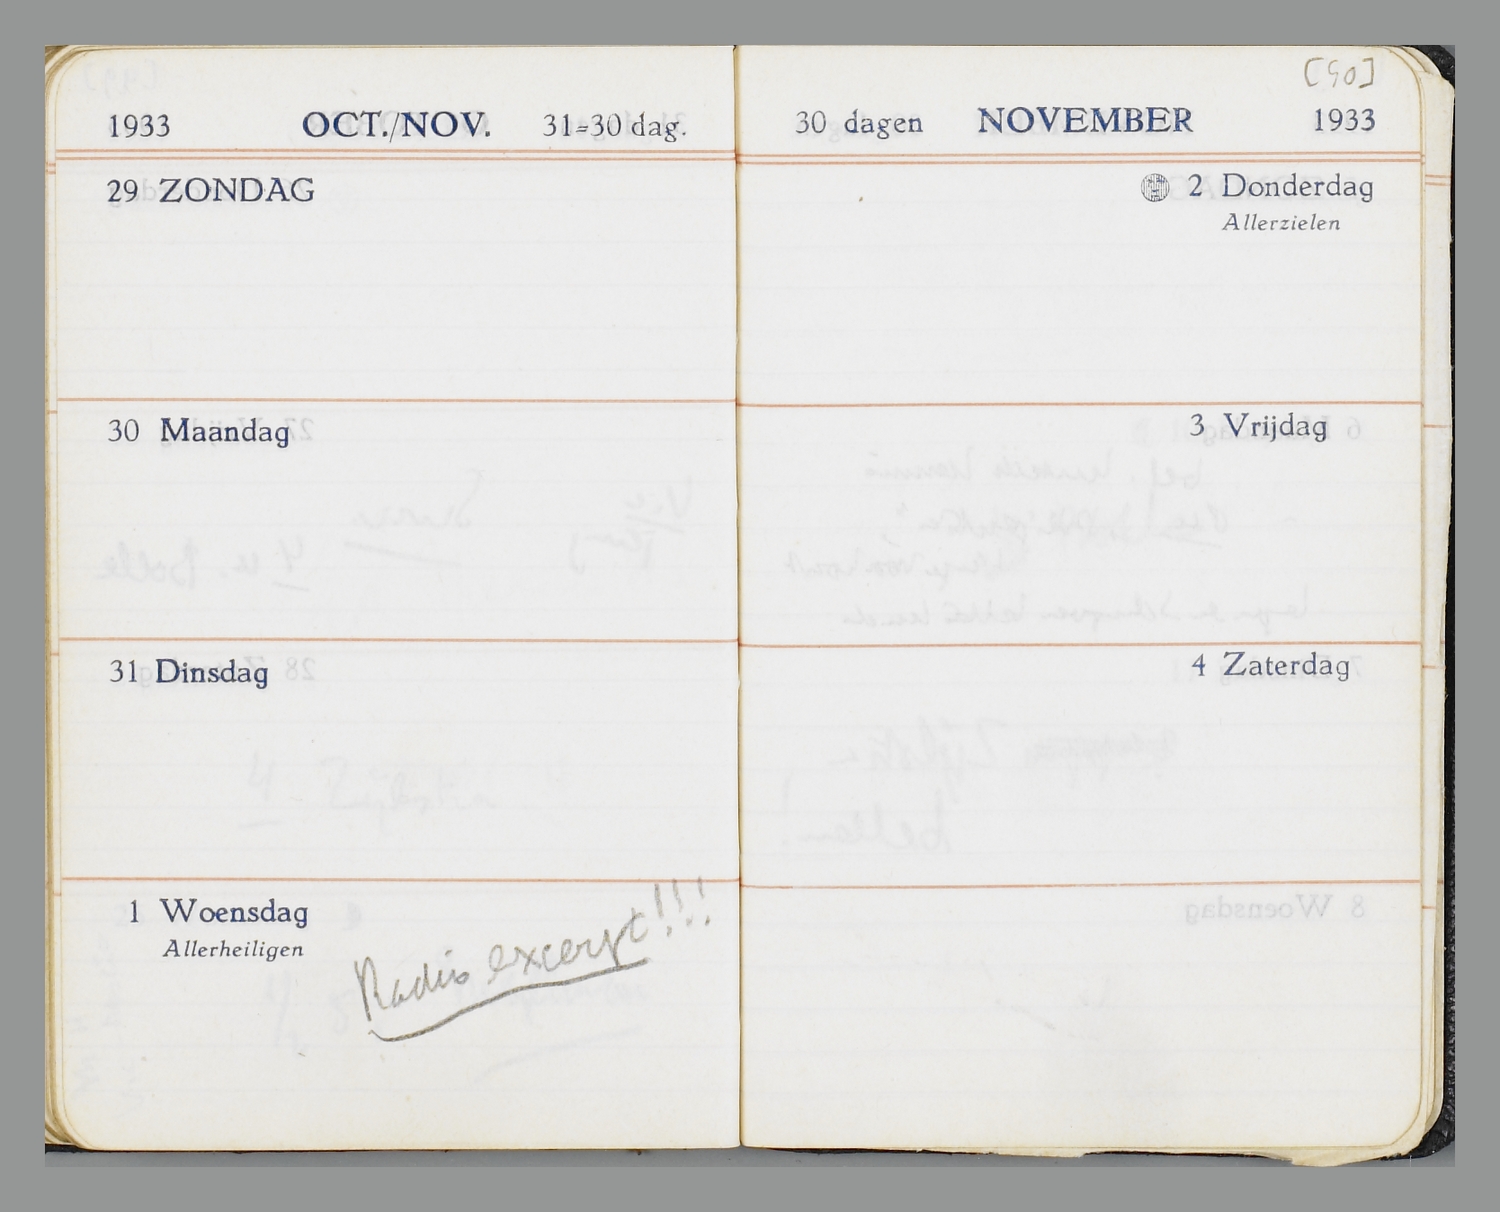 1933 OCT./NOV. 31=30 dag.
29 ZONDAG
30 Maandag
31 Dinsdag
1 Woensdag
Allerheiligen
Radio excerpt!!!
[50]
30 dagen NOVEMBER 1933
2 Donderdag
Allerzielen
3 Vrijdag
4 Zaterdag